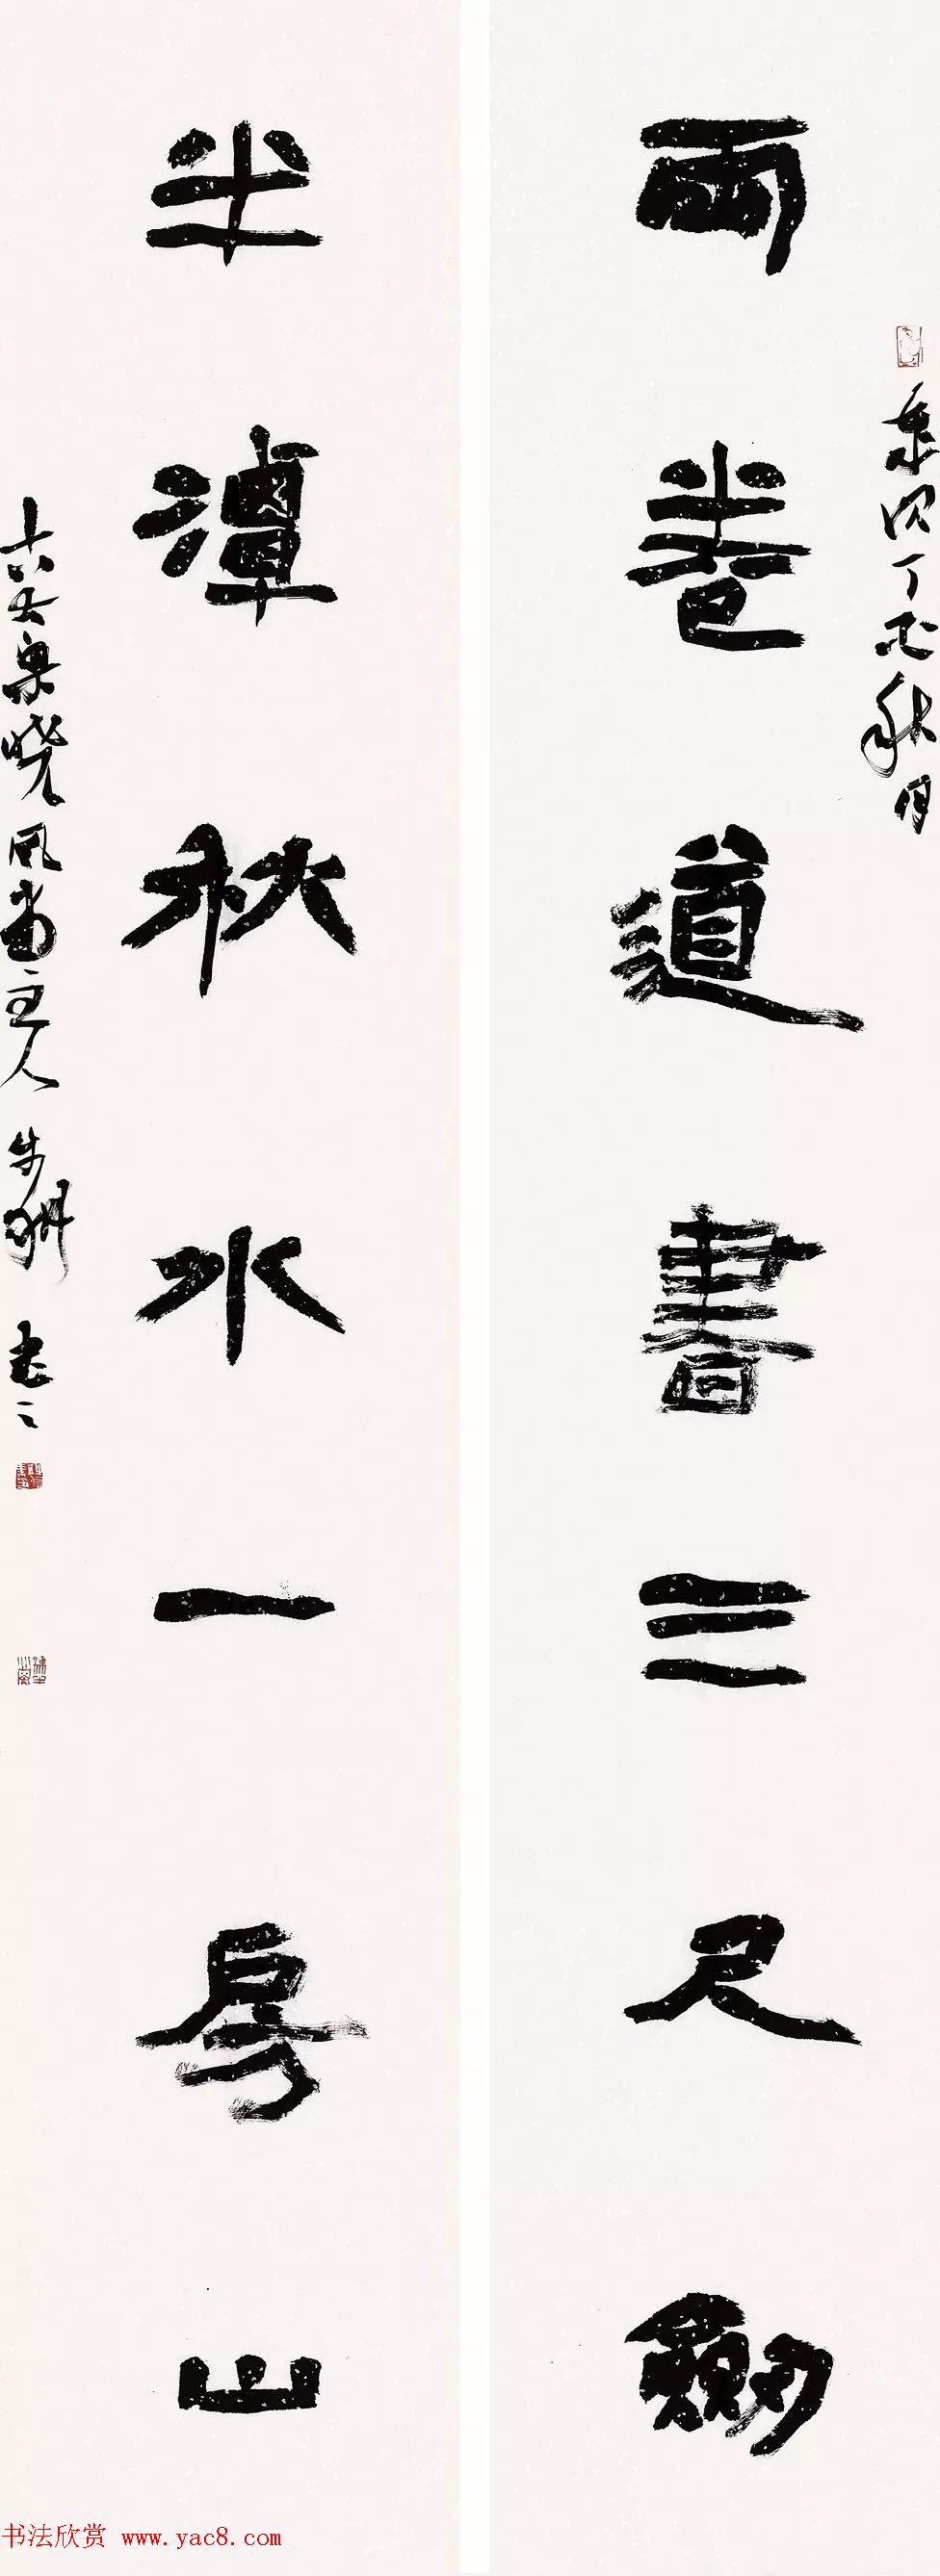 兩卷道書三尺劍
半潭秋水一房山
歲次丁丑秋月
曉風書屋主人
書之
书法欣赏 www.yac8.com